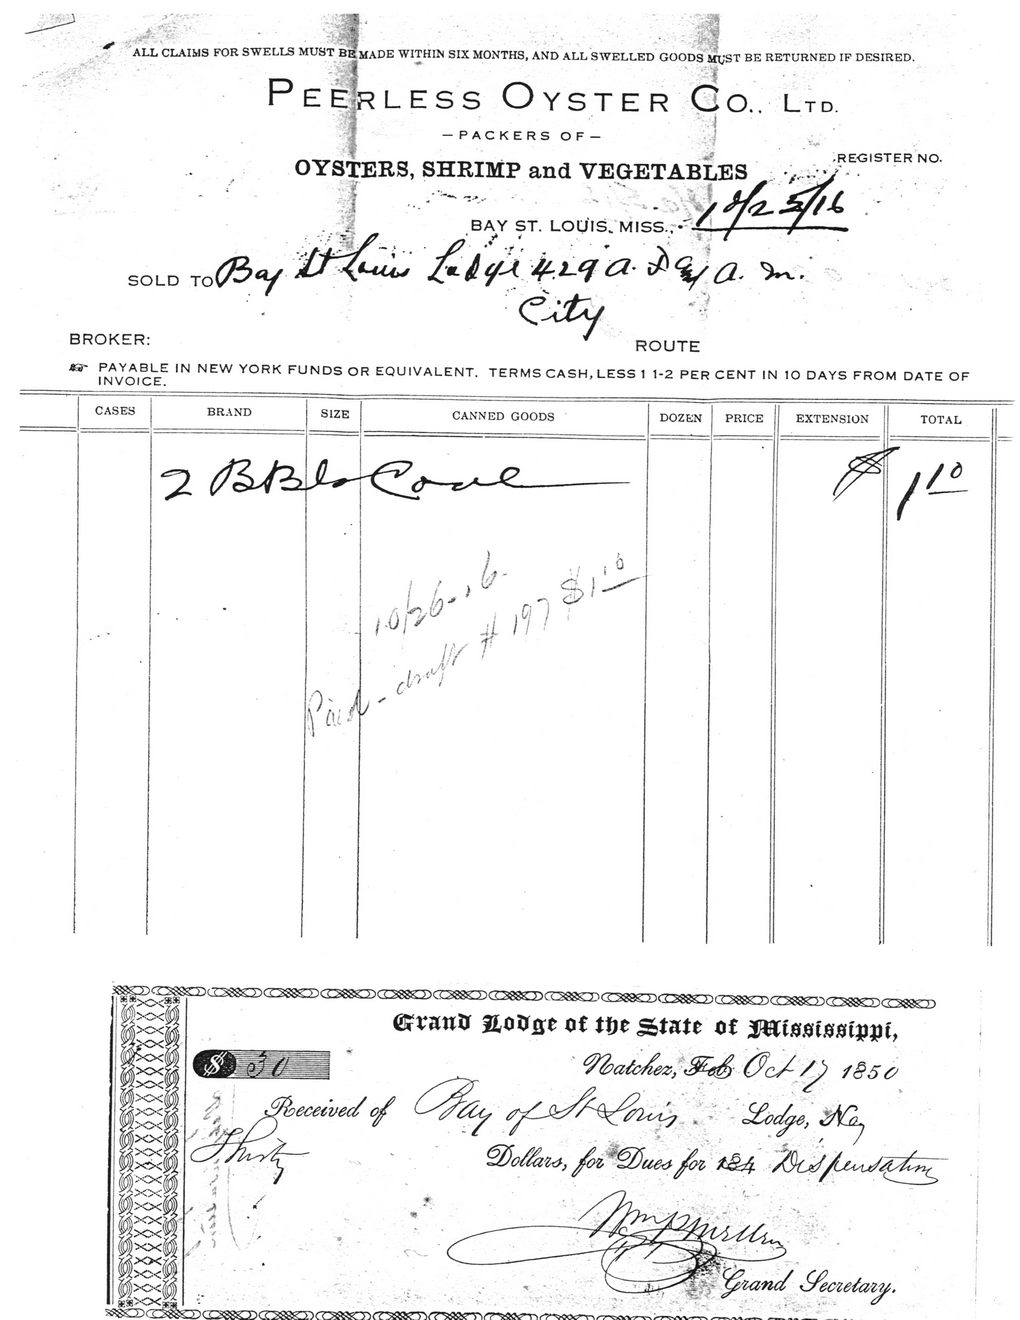 ALL CLAIMS FOR SWELLS MUST BE MADE WITHIN SIX MONTHS, AND ALL SWELLED GOODS MUST BE RETURNED IF DESIRED.
PEERLESS OYSTER CO., LTD.
—PACKERS OF—
OYSTERS, SHRIMP and VEGETABLES
REGISTER NO.
BAY ST. LOUIS, MISS., 10/25/16
SOLD TO Bay St Louis Lodge 429 A. F & A. M.
City
BROKER: ROUTE
PAYABLE IN NEW YORK FUNDS OR EQUIVALENT. TERMS CASH, LESS 1 1-2 PER CENT IN 10 DAYS FROM DATE OF
INVOICE.
CASES BRAND SIZE CANNED GOODS DOZEN PRICE EXTENSION TOTAL
2 BBls Coal $ 1 10
10/26-16-
Paid - draft # 197 $1 10
Grand Lodge of the State of Mississippi,
$ 30 Natchez, Feb Oct 17 1850
Received of Bay of St Louis Lodge, No,
Thirty Dollars, for Dues for 184 Dispensation
Grand Secretary.